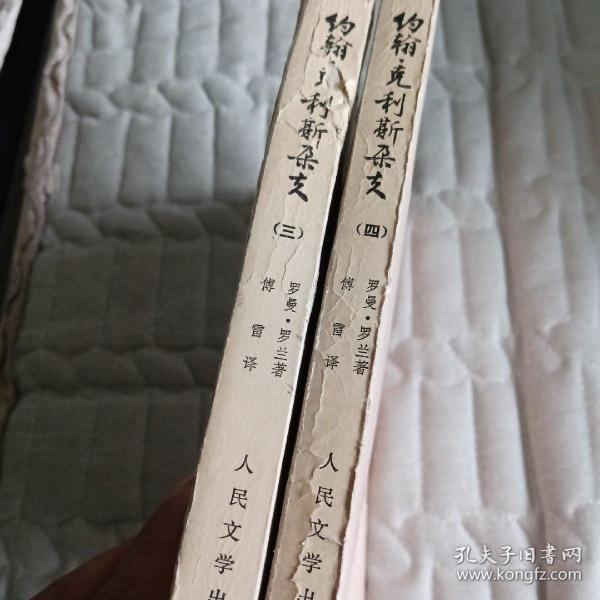 约翰·克利斯朵夫
（三）
罗曼·罗兰著
傅雷译
人民文学出
约翰·克利斯朵夫
（四）
罗曼·罗兰著
傅雷译
人民文学出
孔夫子旧书网
www.kongfz.com